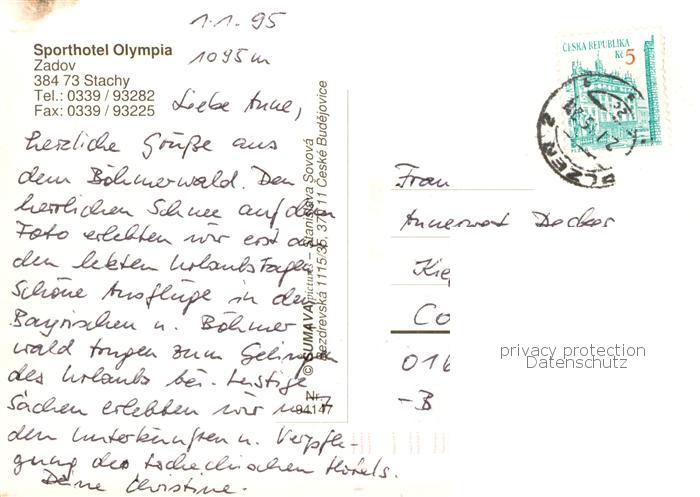 1.1.95
Sporthotel Olympia
Zadov
384 73 Stachy
Tel.: 0339 / 93282
Fax: 0339 / 93225
1095m
Liebe Anne,
herzliche Grüße aus
dem Böhmerwald. Den
herrlichen Schnee auf dem
Foto erlebten wir erst an
den letzten Urlaubstagen.
Schöne Ausflüge in den
Bayrischen u. Böhmer
wald trugen zum Gelingen
des Urlaubs bei. Lustige
Sachen erlebten wir in
den Unterkünften u. Verpfle-
gung des tschechischen Hotels.
Deine Christine.
© ŠUMAVApictures – Stanislava Sovová
Bezdrevská 1115/36, 370 11 České Budějovice
Nr.
94147
ČESKÁ REPUBLIKA
Kč 5
PLZEŇ 2
Frau
Annerose Decker
Co
016
-B
privacy protection
Datenschutz